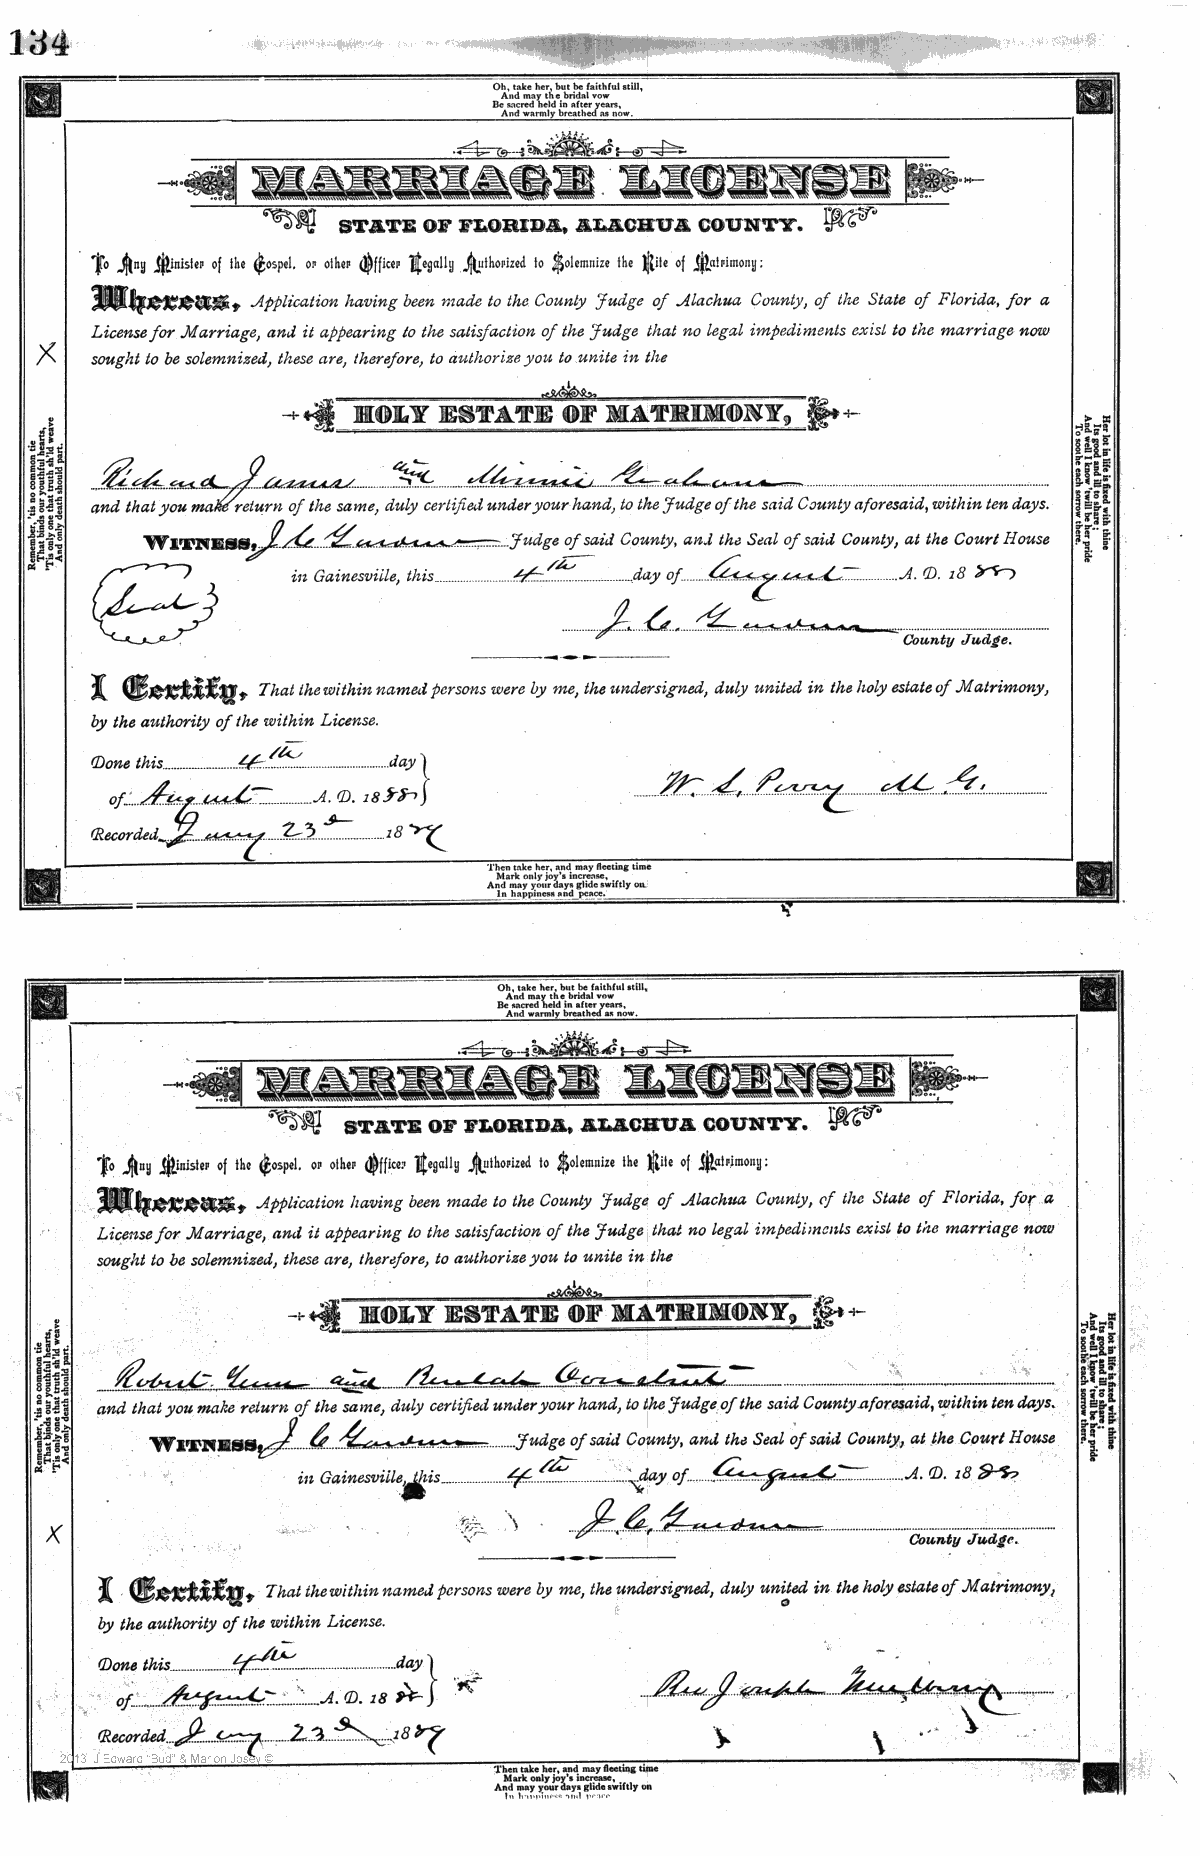 134
Oh, take her, but be faithful still,
And may the bridal vow
Be sacred held in after years,
And warmly breathed as now.
MARRIAGE LICENSE
STATE OF FLORIDA, ALACHUA COUNTY.
To Any Minister of the Gospel, or other Officer Legally Authorized to Solemnize the Rite of Matrimony:
Whereas, Application having been made to the County Judge of Alachua County, of the State of Florida, for a
License for Marriage, and it appearing to the satisfaction of the Judge that no legal impediments exist to the marriage now
sought to be solemnized, these are, therefore, to authorize you to unite in the
X
HOLY ESTATE OF MATRIMONY,
Remember, 'tis no common tie
That binds our youthful hearts,
'Tis only one that truth sh'ld weave
And only death should part.
Her lot in life is fixed with thine
Its good and ill to share;
And well I know 'twill be her pride
To soothe each sorrow there.
Richard James and Minnie Graham
and that you make return of the same, duly certified under your hand, to the Judge of the said County aforesaid, within ten days.
WITNESS, J C Gardner Judge of said County, and the Seal of said County, at the Court House
in Gainesville, this 4th day of August A. D. 1888
Seal
J. C. Gardner
County Judge.
I Certify, That the within named persons were by me, the undersigned, duly united in the holy estate of Matrimony,
by the authority of the within License.
Done this 4th day
of August A. D. 1888
W. S. Perry M. G.
Recorded Jany 23d 1889
Then take her, and may fleeting time
Mark only joy's increase,
And may your days glide swiftly on
In happiness and peace.
Oh, take her, but be faithful still,
And may the bridal vow
Be sacred held in after years,
And warmly breathed as now.
MARRIAGE LICENSE
STATE OF FLORIDA, ALACHUA COUNTY.
To Any Minister of the Gospel, or other Officer Legally Authorized to Solemnize the Rite of Matrimony:
Whereas, Application having been made to the County Judge of Alachua County, of the State of Florida, for a
License for Marriage, and it appearing to the satisfaction of the Judge that no legal impediments exist to the marriage now
sought to be solemnized, these are, therefore, to authorize you to unite in the
HOLY ESTATE OF MATRIMONY,
Remember, 'tis no common tie
That binds our youthful hearts,
'Tis only one that truth sh'ld weave
And only death should part.
Her lot in life is fixed with thine
Its good and ill to share;
And well I know 'twill be her pride
To soothe each sorrow there.
Robert and Beulah
and that you make return of the same, duly certified under your hand, to the Judge of the said County aforesaid, within ten days.
WITNESS, J C Gardner Judge of said County, and the Seal of said County, at the Court House
in Gainesville, this 4th day of August A. D. 1888
J. C. Gardner
County Judge.
X
I Certify, That the within named persons were by me, the undersigned, duly united in the holy estate of Matrimony,
by the authority of the within License.
Done this 4th day
of August A. D. 1888
Rev Joseph
Recorded Jany 23d 1889
2013 J Edward "Bud" & Marion Josey ©
Then take her, and may fleeting time
Mark only joy's increase,
And may your days glide swiftly on
In happiness and peace